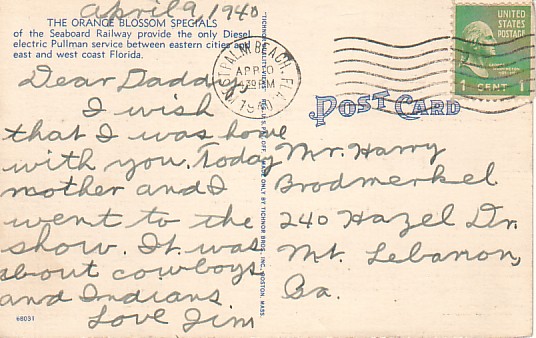 April 9, 1940
THE ORANGE BLOSSOM SPECIALS
of the Seaboard Railway provide the only Diesel
electric Pullman service between eastern cities and
east and west coast Florida.
Dear Daddy
I wish
that I was home
with you. Today
mother and I
went to the
show. It was
about cowboys
and Indians
Love Jim
68031
MADE ONLY BY TICHNOR BROS., INC., BOSTON, MASS.
WEST PALM BEACH, FLA.
APR 10
PM
1940
UNITED
STATES
POSTAGE
1 CENT 1
POST CARD
Mr. Harry
Brodmerkel
240 Hazel Dr.
Mt. Lebanon,
Pa.